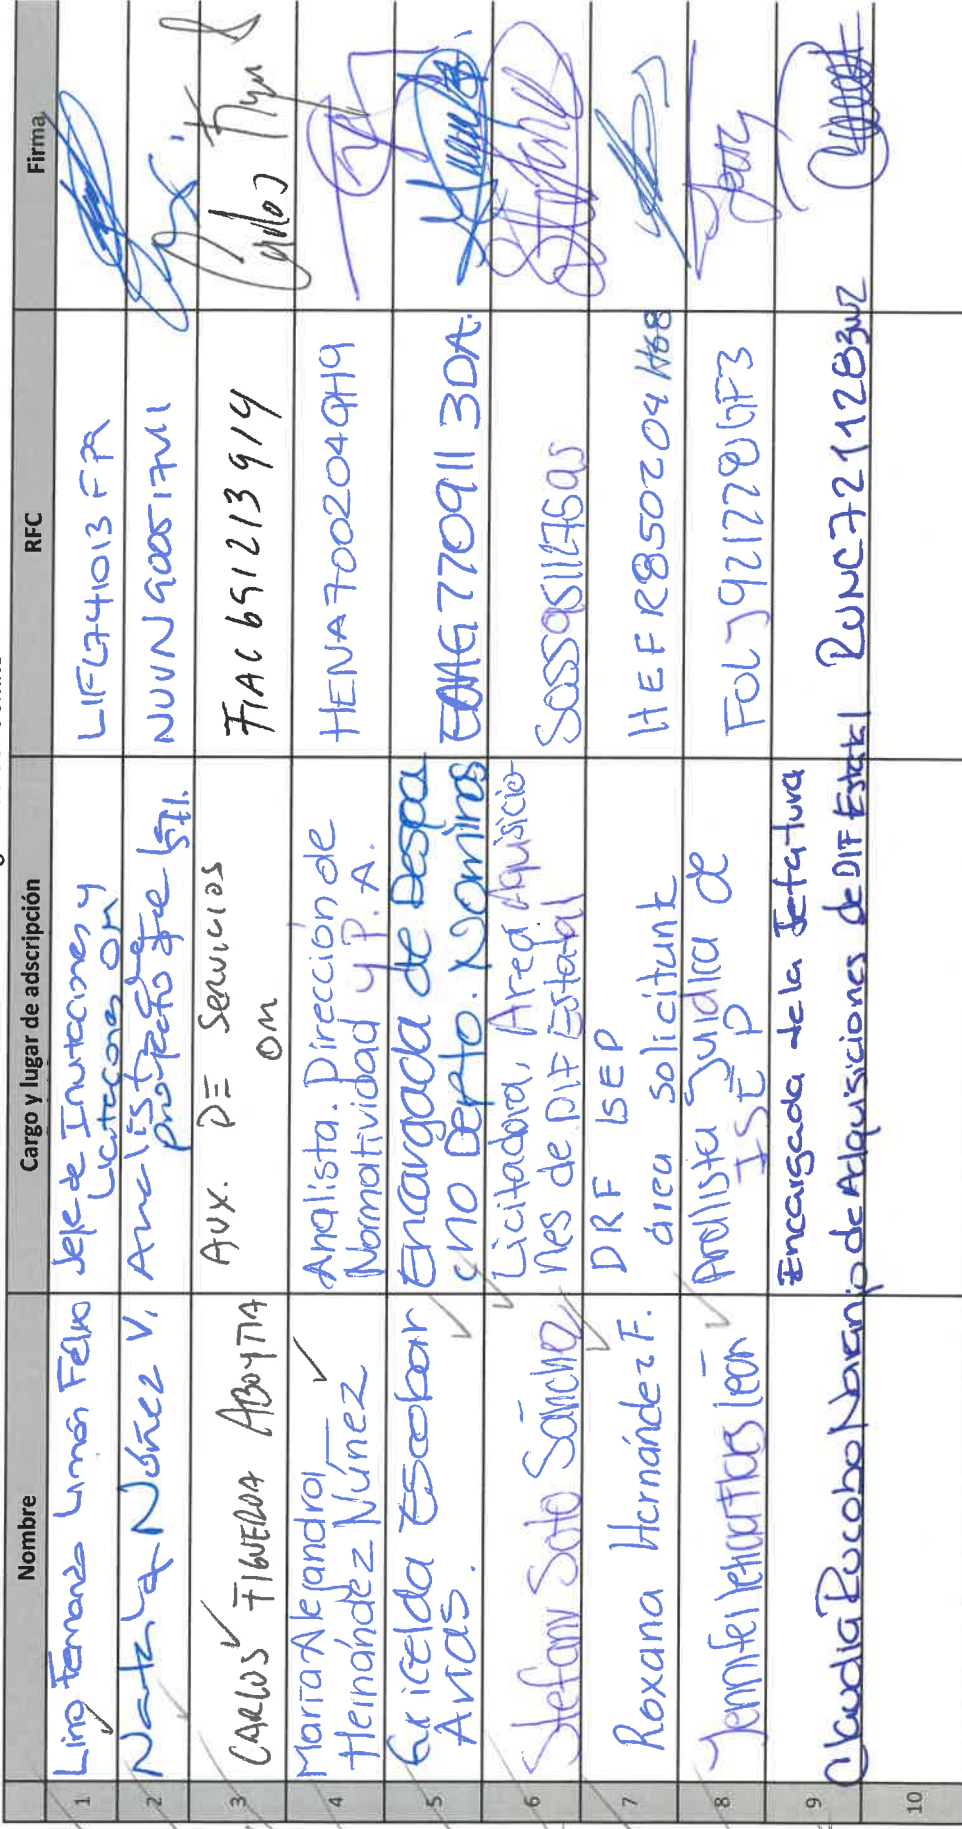 Nombre
Cargo y lugar de adscripción
RFC
Firma
1
Lino Fernando Limón Félix
Jefe de Invitaciones y
Licitaciones OM
LIFL741013FPA
2
Natalya Núñez V.
Analista de
proyecto
NUVN900517
3
CARLOS FIGUEROA ABOYTIA
AUX. DE SERVICIOS
OM
FIAC691213914
4
María Alejandra
Hernández Núñez
Analista. Dirección de
Normatividad y P. A.
HENA7002049H9
5
Gricelda Escobar
Arias.
Encargada de Despa
cho Depto. Nominas
EOAG7709113DA.
6
Stefany Soto Sánchez
Licitadora, Area Adquisicio
nes de DIF Estatal
7
Roxana Hernández F.
DRF ISEP
área solicitante
HEFR850204H68
8
Jennifer León
Analista Jurídica de
ISEP
FOLJ921228GF3
9
Claudia Rucobo Naranjo
Encargada de la Jefatura
de Adquisiciones de DIF Estatal
RUNC7211283W2
10